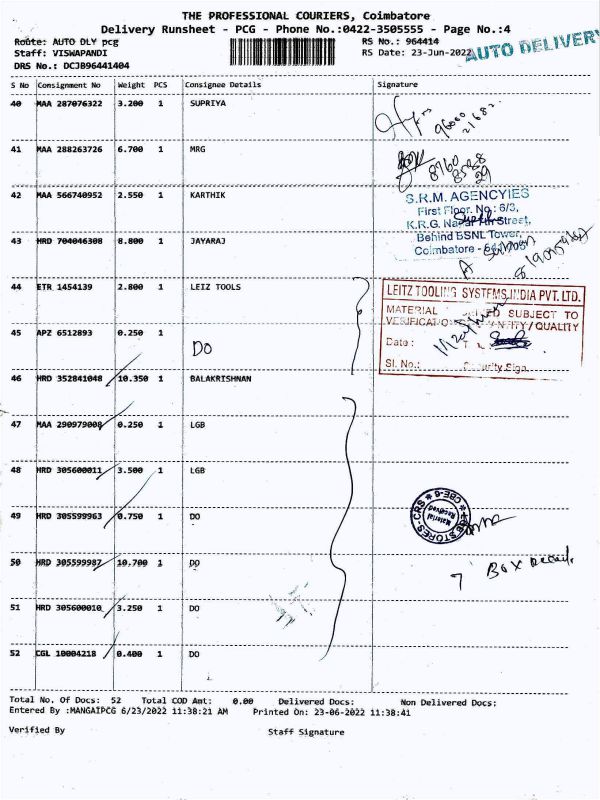 THE PROFESSIONAL COURIERS, Coimbatore
Delivery Runsheet - PCG - Phone No.:0422-3505555 - Page No.:4
Route: AUTO DLY pcg RS No.: 964414
Staff: VISWAPANDI RS Date: 23-Jun-2022 AUTO DELIVERY
DRS No.: DCJB96441404
S No Consignment No Weight PCS Consignee Details Signature
40 MAA 287076322 3.200 1 SUPRIYA
96000
21682
41 MAA 288263726 6.700 1 MRG
8760
8598
29
42 MAA 566740952 2.550 1 KARTHIK
S.R.M. AGENCYIES
First Floor, No : 6/3,
K.R.G. Street,
Behind BSNL Tower,
Coimbatore -
43 HRD 704046308 8.800 1 JAYARAJ
44 ETR 1454139 2.800 1 LEIZ TOOLS
LEITZ TOOLING SYSTEMS INDIA PVT. LTD.
MATERIAL SUBJECT TO
/ QUALITY
45 APZ 6512893 0.250 1 DO
Date :
Sl. No.: Security Sign
46 HRD 352841048 10.350 1 BALAKRISHNAN
47 MAA 290979008 0.250 1 LGB
48 HRD 305600011 3.500 1 LGB
49 HRD 305599963 0.750 1 DO
Material
Received
STORES-CRS CBE-6
50 HRD 305599987 10.700 1 DO
7 Box
51 HRD 305600010 3.250 1 DO
52 CGL 10004218 0.400 1 DO
Total No. Of Docs: 52 Total COD Amt: 0.00 Delivered Docs: Non Delivered Docs:
Entered By :MANGAIPCG 6/23/2022 11:38:21 AM Printed On: 23-06-2022 11:38:41
Verified By Staff Signature